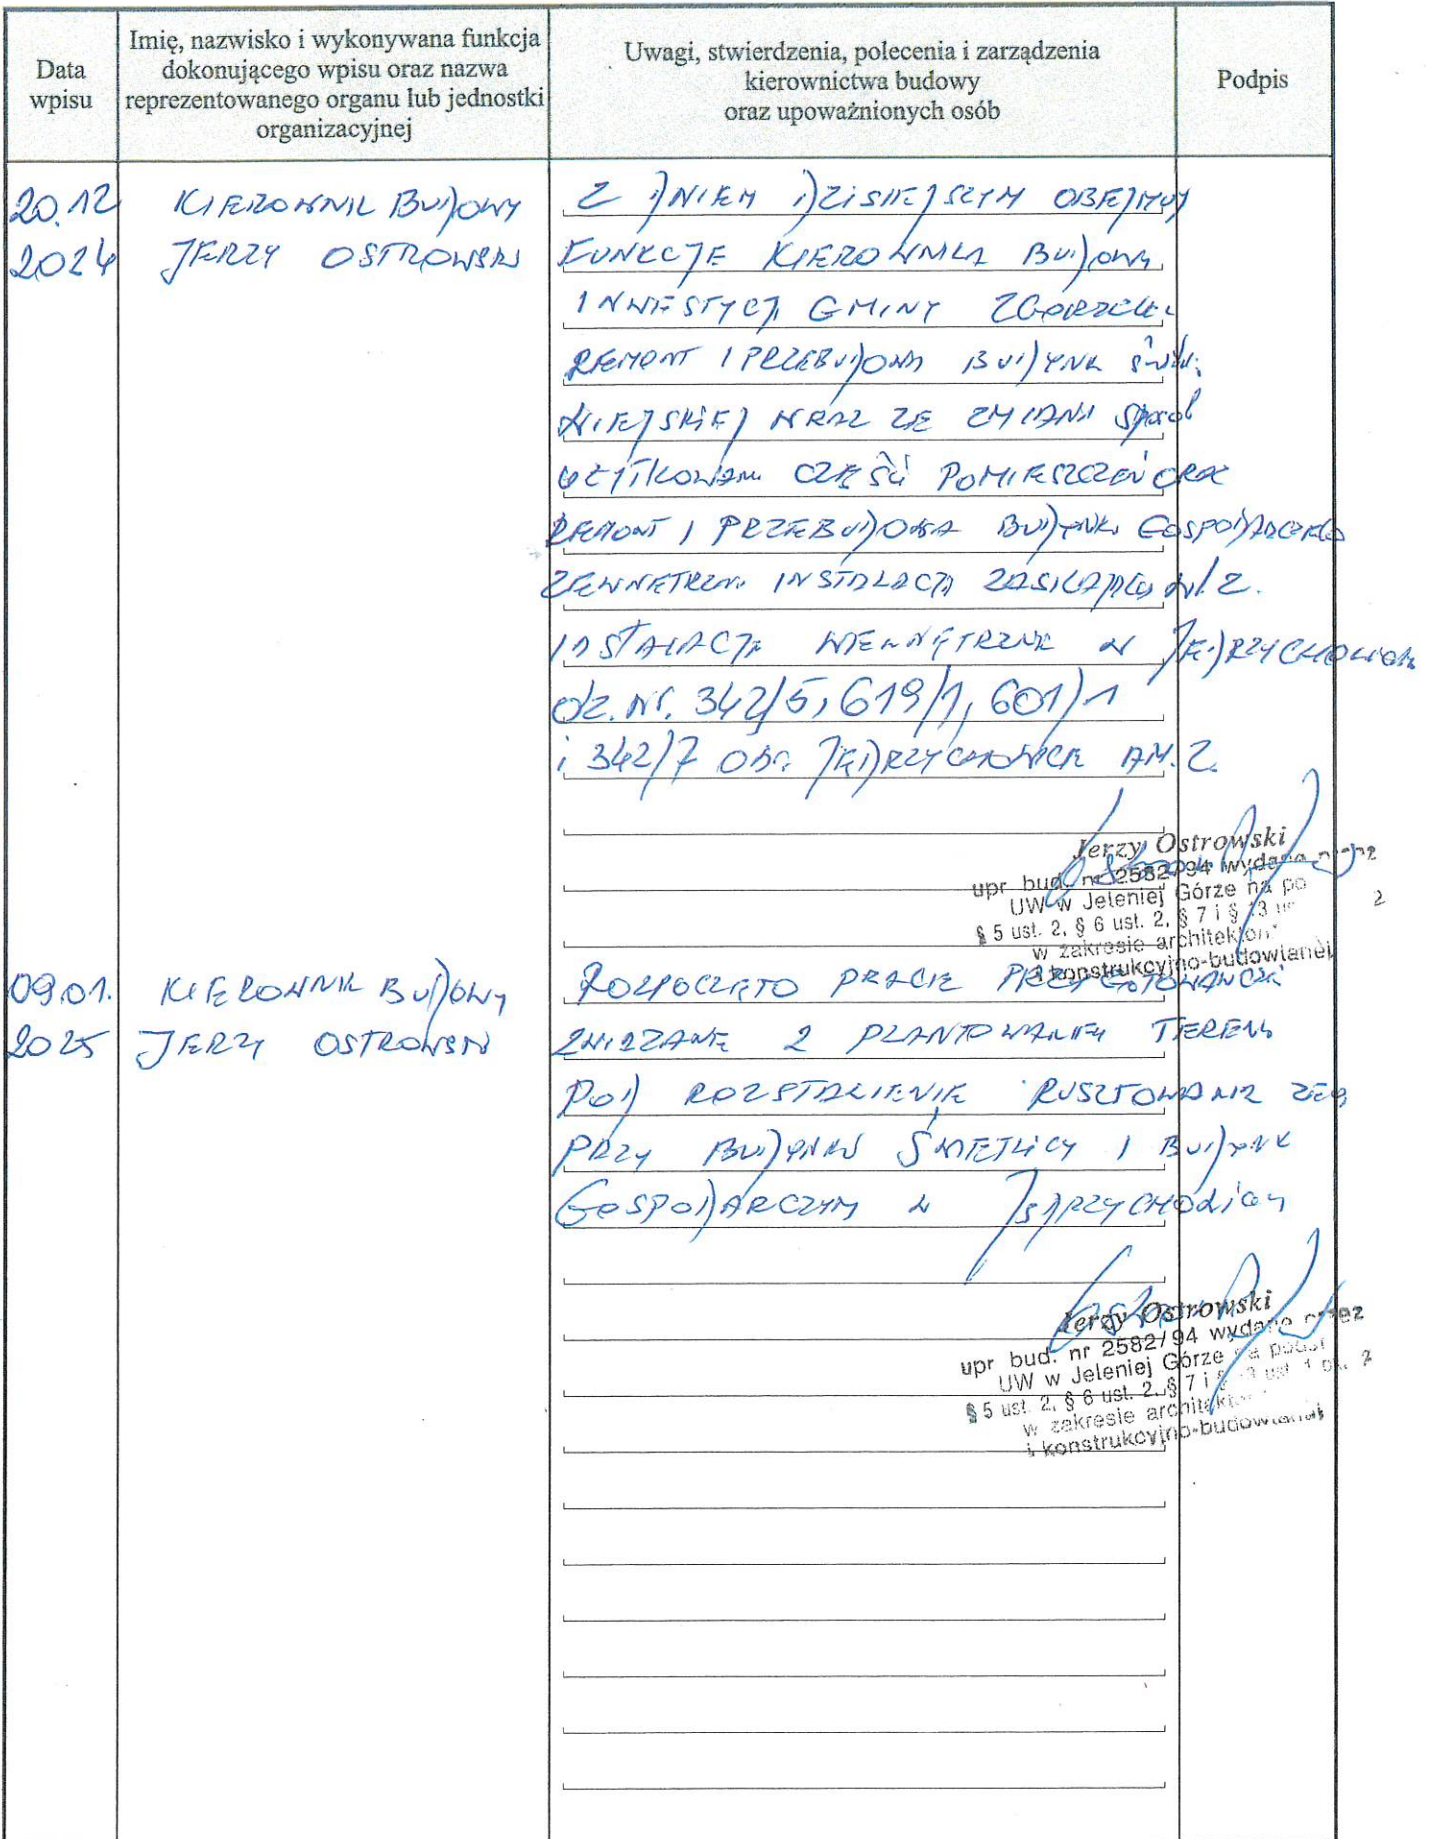 Data
wpisu
Imię, nazwisko i wykonywana funkcja
dokonującego wpisu oraz nazwa
reprezentowanego organu lub jednostki
organizacyjnej
Uwagi, stwierdzenia, polecenia i zarządzenia
kierownictwa budowy
oraz upoważnionych osób
Podpis
20.12
2024
KIEROWNIK BUDOWY
JERZY OSTROWSKI
Z DNIEM DZISIEJSZYM OBEJMUJ
FUNKCJE KIEROWNIKA BUDOWY
INWESTYCJI GMINY ZGORZELEC
REMONT I PRZEBUDOWA BUDYNK
WIEJSKIEJ WRAZ ZE ZMIANĄ SPOSOB
UŻYTKOWANI CZĘŚCI POMIESZCZEŃ ORAZ
REMONT I PRZEBUDOWA BUDYNKU GOSPODARCZEGO
ZEWNETRZN INSTALACJA ZASILAJĄCA WLZ.
INSTALACJE WEWNĘTRZNE W JĘDRZYCHOWICACH
DZ. NR. 342/5, 619/1, 601/1
i 342/7 OBR. JĘDRZYCHOWICE AM. 2.
Jerzy Ostrowski
upr bud. nr 2582/94 wydane przez
UW w Jeleniej Górze na po
§ 5 ust. 2, § 6 ust. 2, § 7 i § 13 2
w zakresie architekton
i konstrukcyjno-budowlanej
09.01.
2025
KIEROWNIK BUDOWY
JERZY OSTROWSKI
ROZPOCZĘTO PRACE PRZYGOTOWAWCZE
ZWIĄZANE Z PLANTOWANIEM TERENU
POD ROZSTAWIENIE RUSZTOWANIA
PRZY BUDYNKU ŚWIETLICY I BUDYNK
GOSPODARCZYM W JĘDRZYCHOWICACH
Jerzy Ostrowski
upr bud. nr 2582/94 wydane przez
UW w Jeleniej Górze na podst
§ 5 ust. 2, § 6 ust. 2, § 7 i § 13 ust 1 pkt. 2
w zakresie architek
i konstrukcyjno-budowlanej